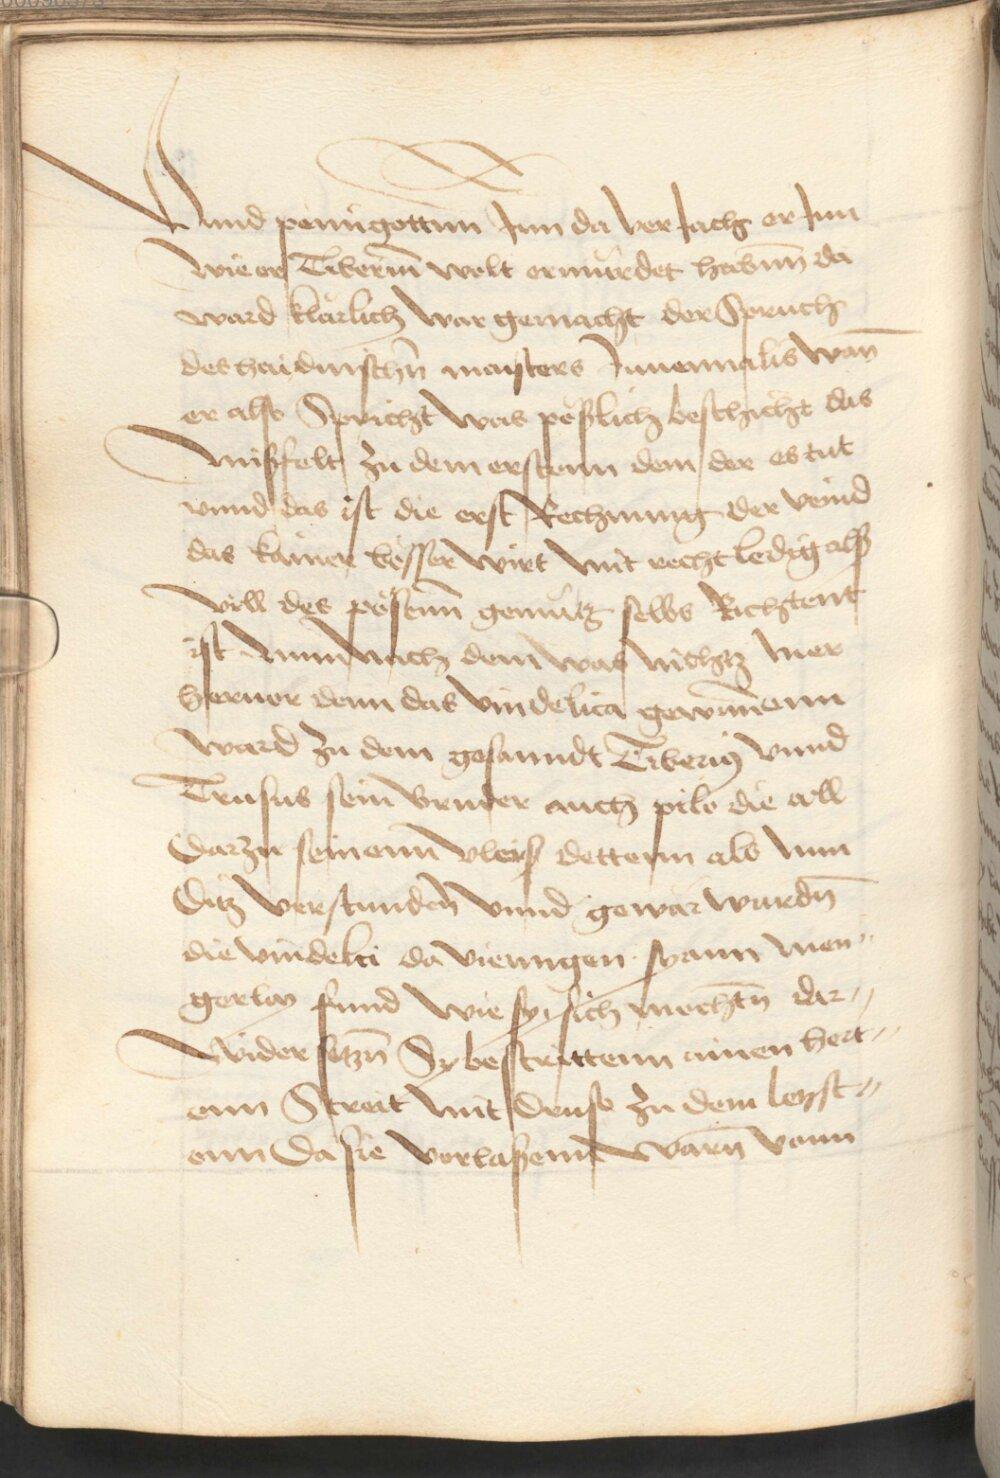 Vnnd peinigottnn Jnn da ver Jach er Jnn
wie er Tiberiu̅ wolt ermürdet habnn̅ da
ward klärlich war gemacht der Spruch
des haidnischn̅ maisters Juuenalis wan̅
er also Spricht was pößlich beschicht das
mißfelt zu dem erstenn dem der es tut
vnnd das ist die erst Rechnung der veind
das kainer besser wirt mit recht ledig alß
vill des pösenn gemütz selbs Richtent
ist Nun nach dem was nichtz mer
hernor denn das vindelica gewun̅enn
ward zu dem gesanndt Tiberiꝯ vnnd
Trusus sein bruder auch pilo die all
Darzu seinenn vleis dettenn als nun
Ditz verstunden̅ vnnd gewar wurdn̅
die vindelci da viengen syann men⸗
gerlay fund wie sy sich mochtn̅ dar⸗
wider setzn̅ Sy bestrittenn ainen hert⸗
enn Streit mit druso zu dem letzst⸗
enn Da sie verlaßenn warn̅ vonn